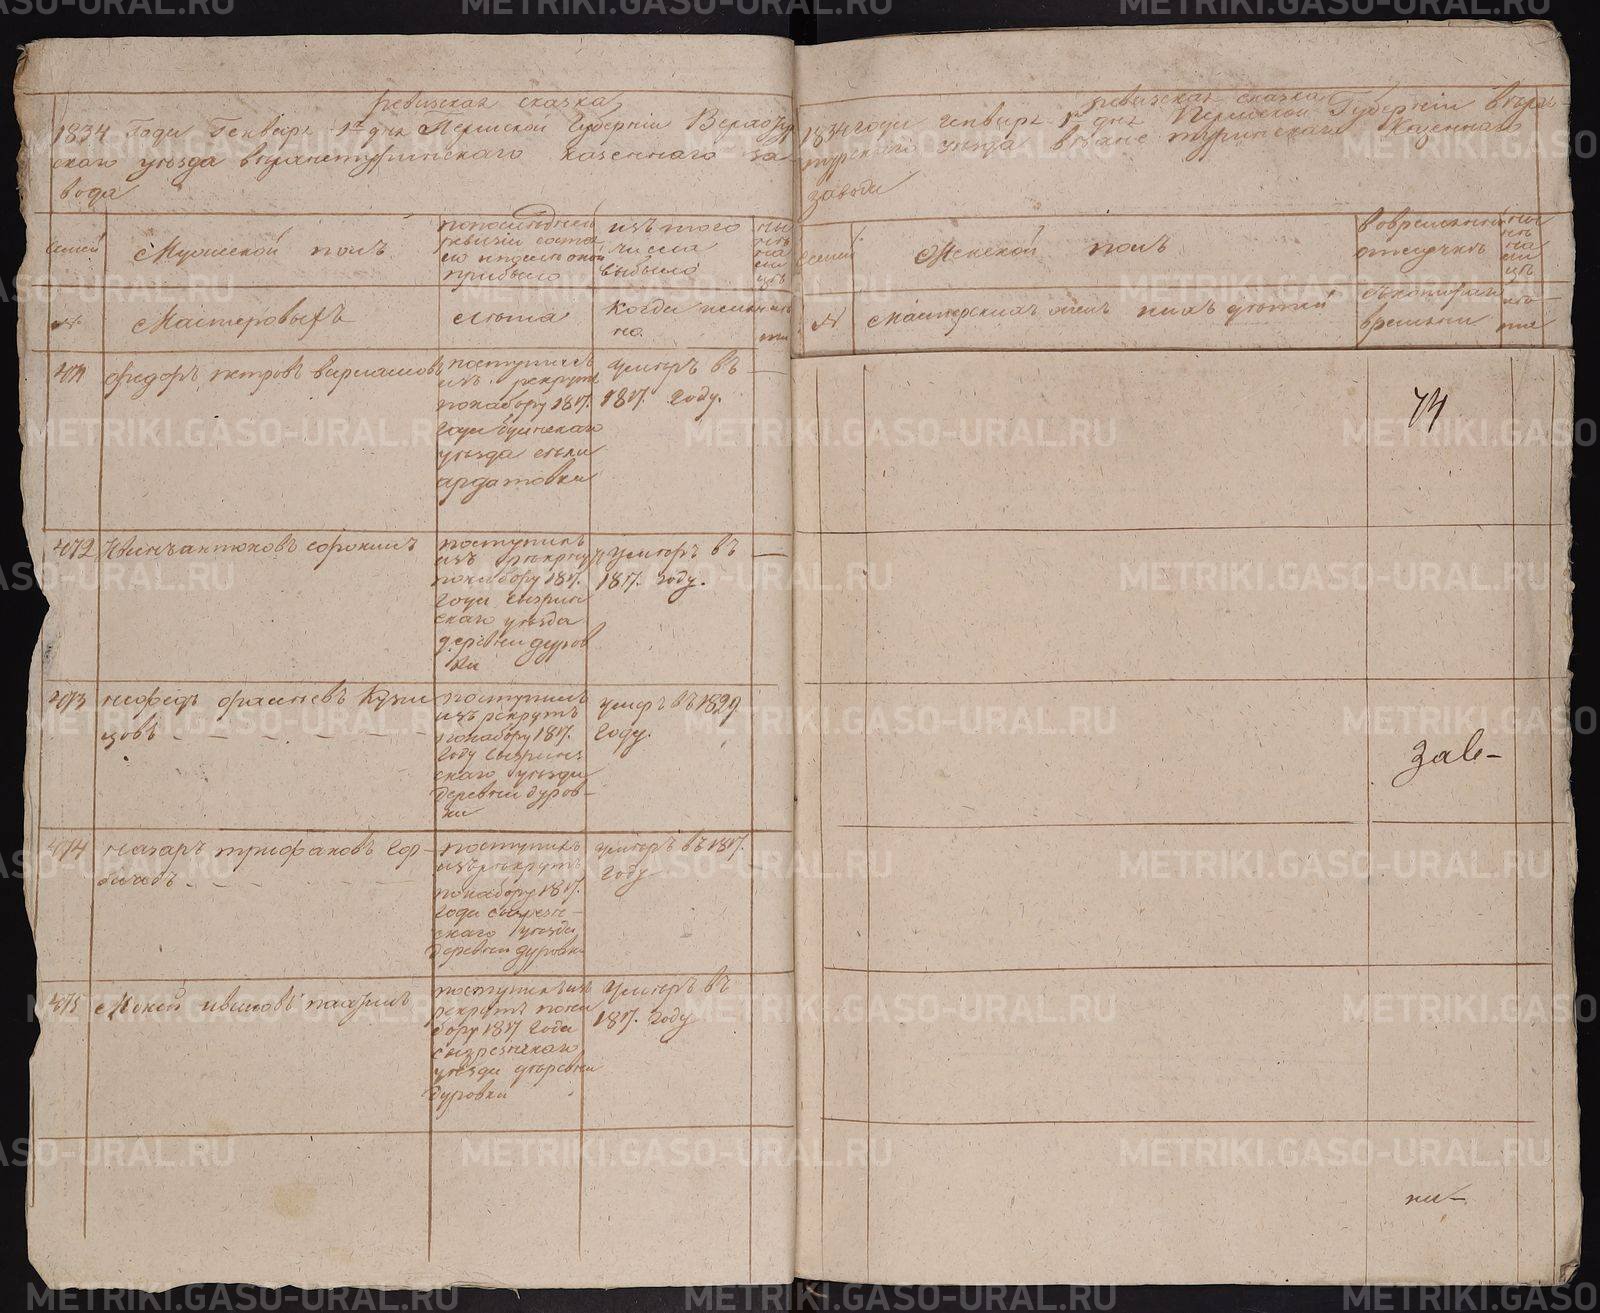 ревизская сказка
1834 Года Генваря 1го дня Пермской Губернiи Верхотур
скаго уезда верхнетуринскаго казеннаго за-
вода
семей
Мужеской полъ
по последней
ревизiи состо
яло и после оной
прибыло
изъ того
числа
выбыло
ны
не
на
ли
цо
№
Мастеровыхъ
лета
когда имен
но
471
федоръ петровъ варламовъ
поступилъ
изъ рекрутъ
по набору 1817.
года буинскаго
уезда села
ардатовки
умеръ въ
1817. году.
472
антюховъ сорокинъ
поступилъ
изъ рекрутъ
по набору 1817.
года сызран
скаго уезда
деревни дуров
ки
умеръ въ
1817. году.
473
нефедъ Кузне
цовъ
поступилъ
изъ рекрутъ
по набору 1817.
году сызран
скаго уезда
деревни дуров-
ки
умеръ въ 1829
году.
474
назаръ трифановъ Гор-
бачовъ
поступилъ
изъ рекрутъ
по набору 1817.
года сызран-
скаго уезда
деревни дуровки
умеръ въ 1817.
году
475
Мокей ивановъ
поступилъ изъ
рекрутъ пона
бору 1817 года
сызренскаго
уезда деревни
дуровки
умеръ въ
1817. году
ревизская сказка
1834 года генваря 1го дня Пермской Губернiи верхо
турскаго уезда верхне туринскаго Казеннаго
завода
семей
Женской полъ
во временной
отлучке
ны
не
на
ли
цо
№
Мастерския жены и ихъ детей
съ котораго
времени
ле
та
74
Заве-
ли-
METRIKI.GASO-URAL.RU